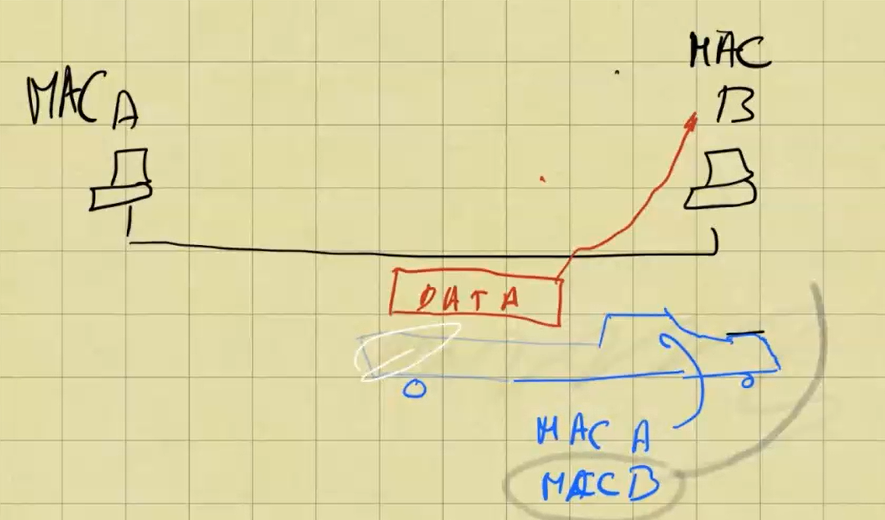 MAC A
MAC
B
DATA
MAC A
MAC B